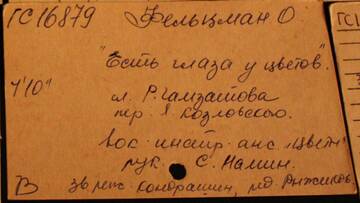 ГС16879 Фельцман О
"Есть глаза у цветов".
4'10"
сл. Р. Гамзатова
пер. Я. Козловского.
Вок. инстр. анс. "Цветы"
рук. С. Намин.
В зв. реж. Кондрашин, ред. Рыжиков.
ГС1